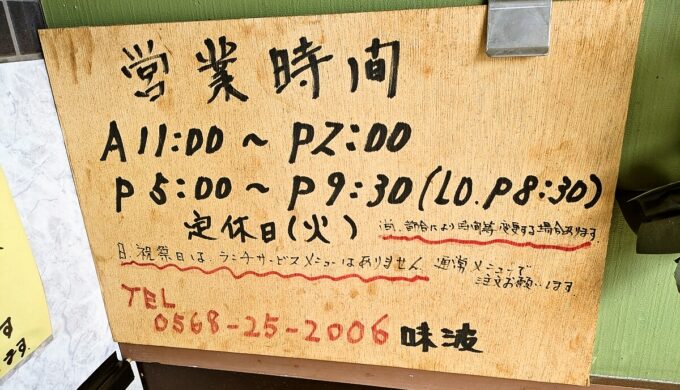 営業時間
A 11:00 ～ P2:00
P 5:00 ～ P 9:30 (LO. P 8:30)
定休日(火) 都合により 変更する場合あります
日、祝祭日は、ランチサービスメニューはありません。通常メニューで
注文お願いします
TEL
0568-25-2006 味波
す
ます